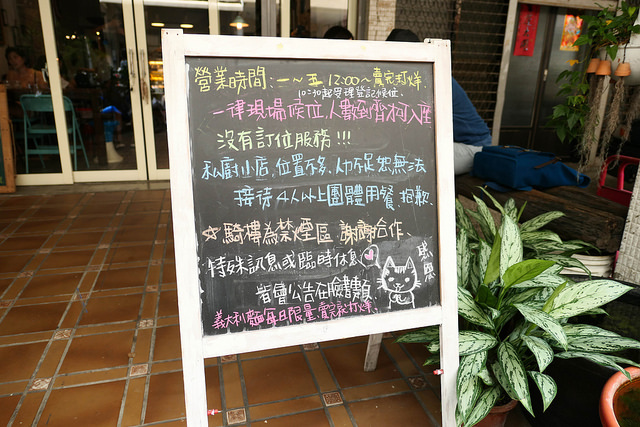 營業時間：一～五 12:00～賣完打烊.
10:30起受理登記候位.
一律現場候位,人數到齊才可入座
沒有訂位服務!!!
私廚小店,位置不多,人力不足,恕無法
接待4人以上團體用餐.抱歉.
☆騎樓為禁煙區 謝謝合作.
特殊訊息或臨時休息
皆會公告在臉書頁
感恩
義大利麵每日限量,賣完就打烊.